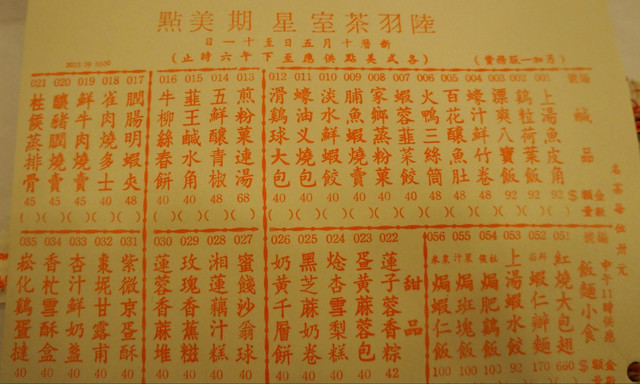 陸羽茶室星期美點
新曆十月五日至十一日
(各式美點供應至下午六時止)
(另加一服務費)
名茶每位卅元
編號 鹹品 金額 $
001 上湯魚皮角 92
002 鷄粒荷葉飯 92
003 八寶飯 92
004 蠔汁鮮竹卷 48
005 百花釀魚肚 48
006 火鴨三絲筒 40
007 蝦蓉韮菜餃 40
008 家鄉蒸粉菓 40
009 脯魚蝦燒賣 40
010 淡水鮮蝦餃 40
011 蠔油叉燒包 40
012 滑鷄球大包 40
013 煎粉菓連湯 68
014 五鮮釀青椒 48
015 韮王鹹水角 40
016 牛柳絲春餅 40
017 膶腸明蝦夾 48
018 雀肉燒多士 40
019 鮮牛肉燒賣 45
020 釀豬膶燒賣 45
021 柱侯蒸排骨 45
編號 飯麵小食 中午11時供應 金額
051 紅燒大包翅 660
052 蝦仁辦麵 170
053 上湯蝦水餃 92
054 焗肥鷄飯 100
055 焗斑塊飯 100
056 焗蝦仁飯 100
甜品
022 蓮子蓉香粽 42
023 蛋黃蔴蓉包 40
026 奶黃千層餅 40
025 黑芝蔴奶卷 40
024 燴杏雪梨糕 40
027 蜜餞沙翁球 40
028 湘蓮藕汁糕 40
029 玫瑰香蕉糍 40
030 蓮蓉香蔴堆 40
031 紫微京蛋酥 40
032 棗坭甘露甫 40
033 杏汁鮮奶盞 40
034 香杧雪酥盒 40
035 崧化鷄蛋撻 40